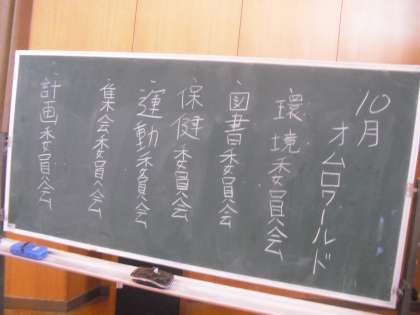 10月
オムロワールド
環境委員会
図書委員会
保健委員会
運動委員会
集会委員会
計画委員会